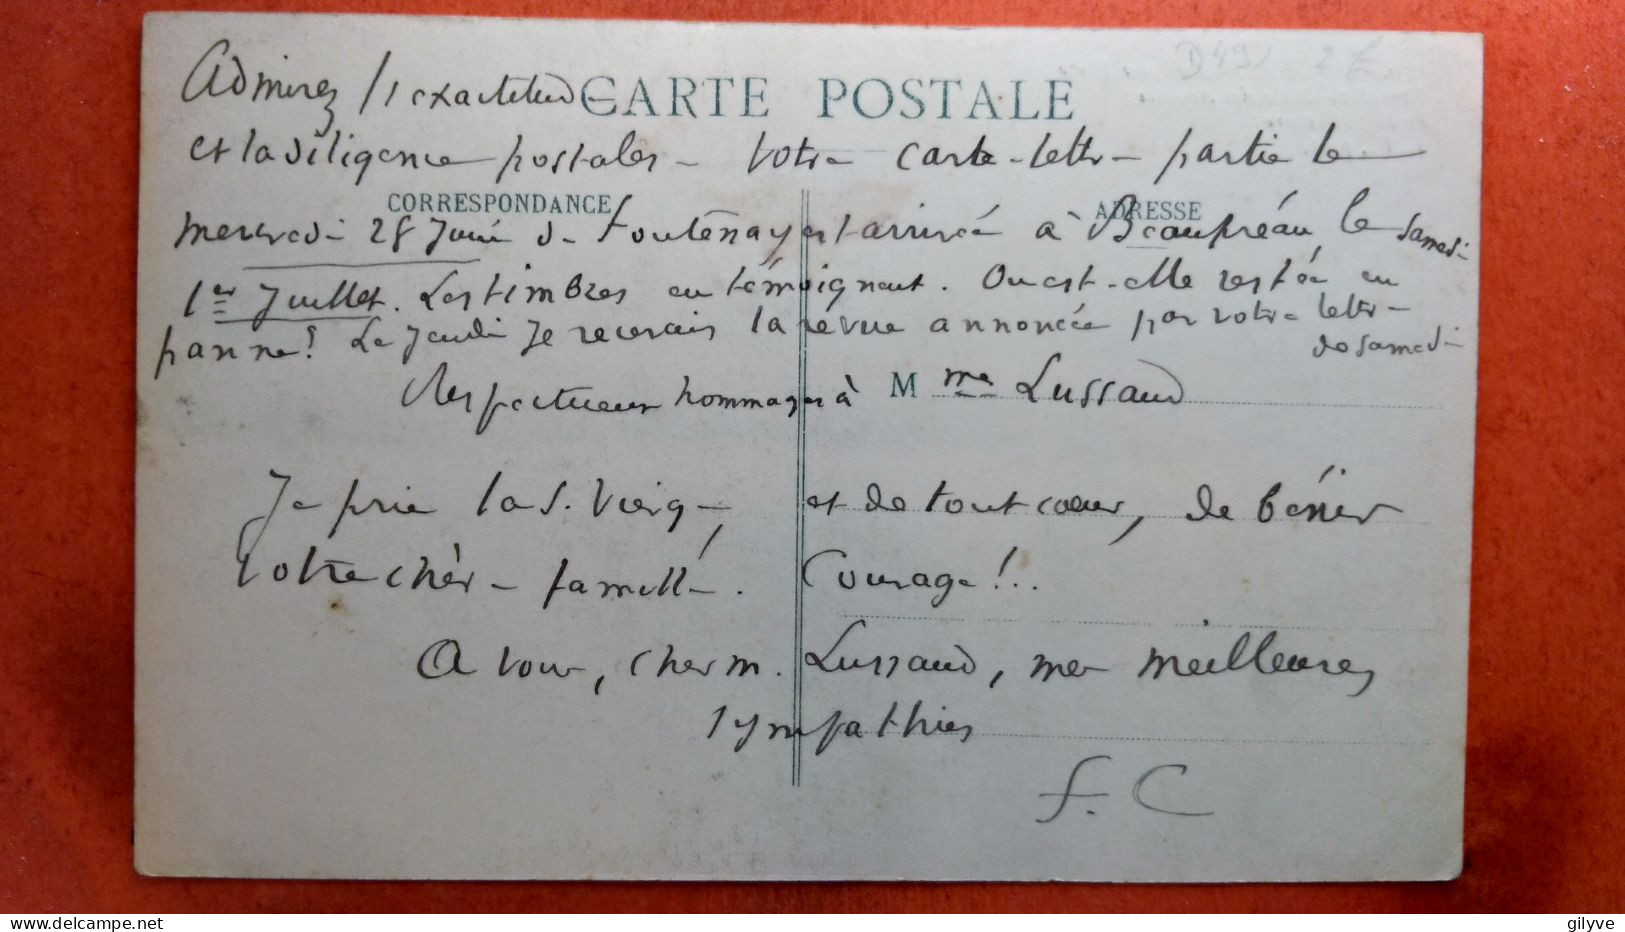 D49 2
Admirez l'exactitude
CARTE POSTALE
et la diligence postales - Votre carte-lettre partie le
CORRESPONDANCE
ADRESSE
mercredi 28 Juin de Fontenay est arrivée à Beaupréau, le samedi
1er Juillet. Les timbres en témoignent. Ou est-elle restée en
panne? Le Jeudi je recevais la revue annoncée par votre lettre
de samedi
Respectueux hommages à Mme Lussaud
Je prie la S. Vierge, et de tout coeur, de bénir
votre chère famille. Courage!..
A vous, cher M. Lussaud, mes meilleures
sympathies
F. C
gilyve